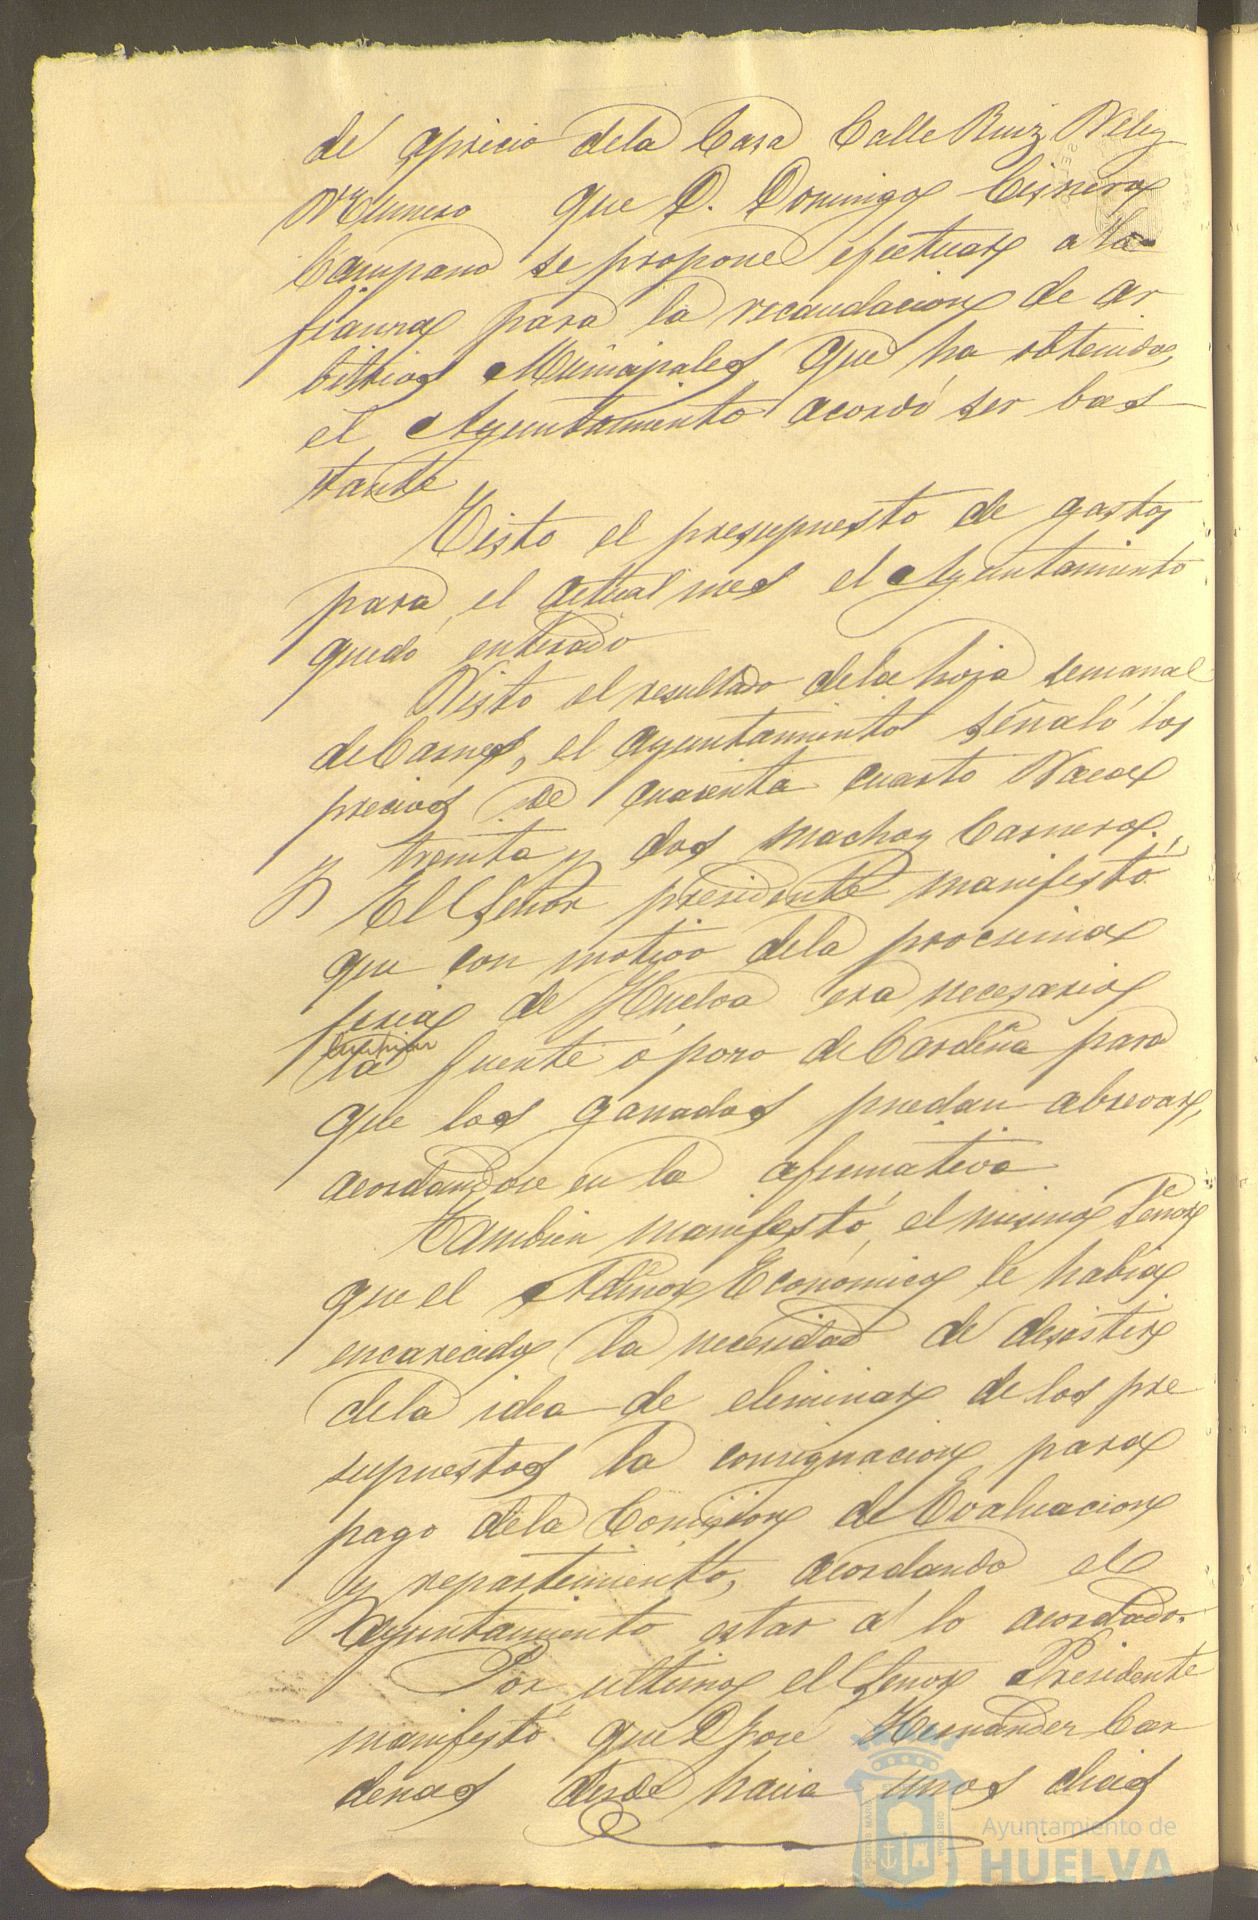 de aprecio dela Casa Calle Ruiz Velez
Número que D. Domingo Cisneros
Campano se propone efectuar a la
fianza para la recaudacion de ar
bitrios Municipales que ha obtenido,
el Ayuntamiento acordó ser bas
tante
Visto el presupuesto de gastos
para el actual mes el Ayuntamiento
quedó enterado
Visto el resultado dela hoja semanal
de Carnes, el ayuntamiento señaló los
precios de cuarenta cuarto Vacas
y treinta y dos machos Carneros.
El Señor presidente manifestó
que con motivo dela procsima
feria de Huelva era necesario
limpiar
la fuente ó pozo de Cardeña para
que los ganados puedan abrevar,
acordandose en la afirmativa
Tambien manifestó, el mismo Señor
que el Admor Económico le habia
encarecido la necesidad de desistir
dela idea de eliminar de los pre
supuestos la consignacion para
pago dela Comision de Evaluacion
y repartimiento, acordando el
Ayuntamiento estar á lo acordado.
Por ultimo el Señor Presidente
manifestó que D José Hernandez Car
denas desde hacia unos dias
Ayuntamiento de
HUELVA